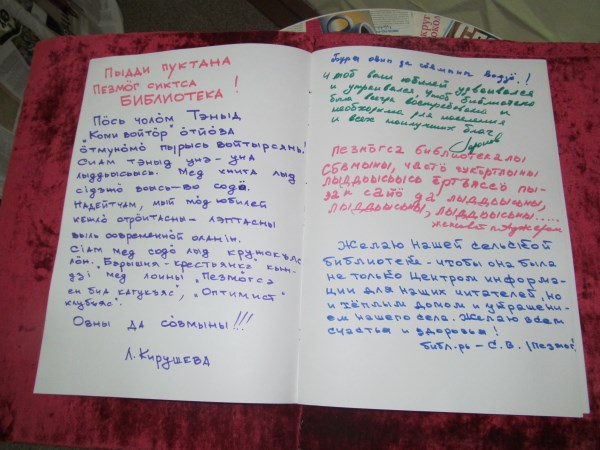 Пыдди пуктана
Пезмӧг сиктса
БИБЛИОТЕКА!
Пӧсь чолӧм Тэныд
"Коми войтӧр" ӧтйӧза
ӧтмунӧмӧ пырысь войтырсянь!
Сиам тэныд уна-уна
лыддьысьысь. Мед книга лыд
сідзжӧ воысь-во содӧ.
Надейтчам, мый мӧд юбилей
кежлӧ отрӧитасны-лэптасны
выль современнӧй оланін.
Сіам мед содӧ лыд кружокъяс-
лӧн. "Барышня-крестьянка" кын-
дзі мед лоины "Пезмӧгса
ен бил катукъяс", "Оптимист"
клубъяс".
Овны да сӧвмыны!!!
Л. Кирушева
Бура овны да сӧвмыны водзӧ!
Чтоб ваш юбилей удваивался
и утраивался. Чтоб библиотека
была всегда востребована и
необходима для населения
и всех наилучших благ.
Пезмӧгса библиотекалы
сӧвмыны, частӧ зикертлыны
лыддьысьысь ёртъясӧ пы-
лыддьысьны,
лыддьысьны, лыддьысьны.....
Желаю нашей сельской
библиотеке - чтобы она была
не только Центром информа-
ции для наших читателей, но
и тёплым домом и украшени-
ем нашего села. Желаю всем
счастья и здоровья!
библ-рь - С.В. (Пезмӧг)